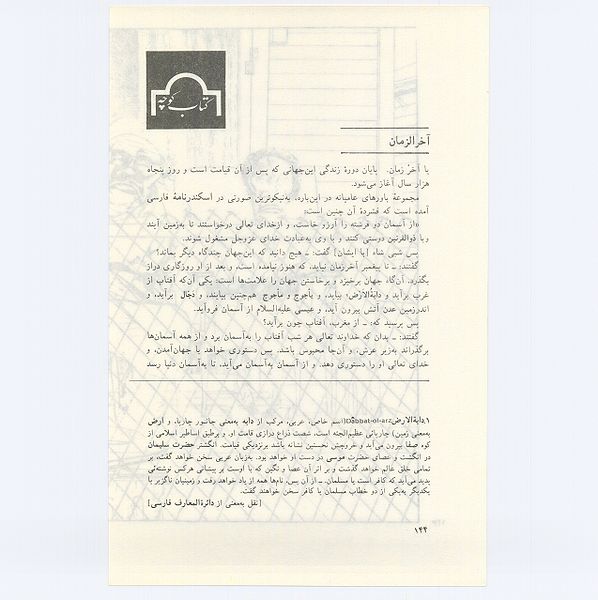 کتاب کوچه
آخرالزمان
یا آخرْ زمان. پایان دورهٔ زندگی این‌جهانی که پس از آن قیامت است و روز پنجاه
هزار سال آغاز می‌شود.
مجموعهٔ باورهای عامیانه در این‌باره، به‌نیکوترین صورتی در اسکندرنامهٔ فارسی
آمده است که فشردهٔ آن چنین است:
«از آسمان دو فرشته را آرزو خاست، و ازخدای تعالی درخواستند تا به‌زمین آیند
و با ذوالقرنین دوستی کنند و با وی به‌عبادت خدای عزوجل مشغول شوند.
پس شبی شاه [با ایشان] گفت: ــ هیچ دانید که این‌جهان چندگاه دیگر بماند؟
گفتند: ــ تا پیغمبر آخرزمان نیاید، که هنوز نیامده است، و بعد از او روزگاری دراز
بگذرد. آن‌گاه جهان برخیزد و برخاستن جهان را علامت‌ها است: یکی آن‌که آفتاب از
غرب برآید و دابةالارض۱ بیاید، و یأجوج و مأجوج هم‌چنین بیایند، و دجال برآید، و
اندرزمین عدن آتش بیرون آید، و عیسی علیه‌السلام از آسمان فروآید.
پس پرسید که: ــ از مغرب، آفتاب چون برآید؟
گفتند: ــ بدان که خداوند تعالی هر شب آفتاب را به‌آسمان برد و از همه آسمان‌ها
برگذراند به‌زیر عرش، و آن‌جا محبوس باشد. پس دستوری خواهد با جهان‌آمدن، و
خدای تعالی او را دستوری دهد. و از آسمان به‌آسمان می‌آید، تا به‌آسمان دنیا رسد
۱. دابةالارض Dâbbat-ol-arz (اسم خاص، عربی، مرکب از دابه به‌معنی جانور چارپا، و ارض
به‌معنی زمین) چارپائی عظیم‌الجثه است، شصت ذراع درازی قامت او. و برطبق اساطیر اسلامی از
کوه صفا بیرون می‌آید و خروجش نخستین نشانه باشد برنزدیکی قیامت. انگشتر حضرت سلیمان
در انگشت و عصای حضرت موسی در دست او خواهد بود. به‌زبان عربی سخن خواهد گفت، بر
تمامی خلق عالم خواهد گذشت و بر اثر آن عصا و نگین که با اوست بر پیشانی هرکس نوشته‌ئی
پدید می‌آید که کافر است یا مسلمان. ــ از آن پس، نام‌ها همه از یاد خواهد رفت و زمینیان ناگزیر با
یکدیگر به‌یکی از دو خطاب مسلمان یا کافر سخن خواهند گفت.
[نقل به‌معنی از دائرةالمعارف فارسی]
۱۴۴